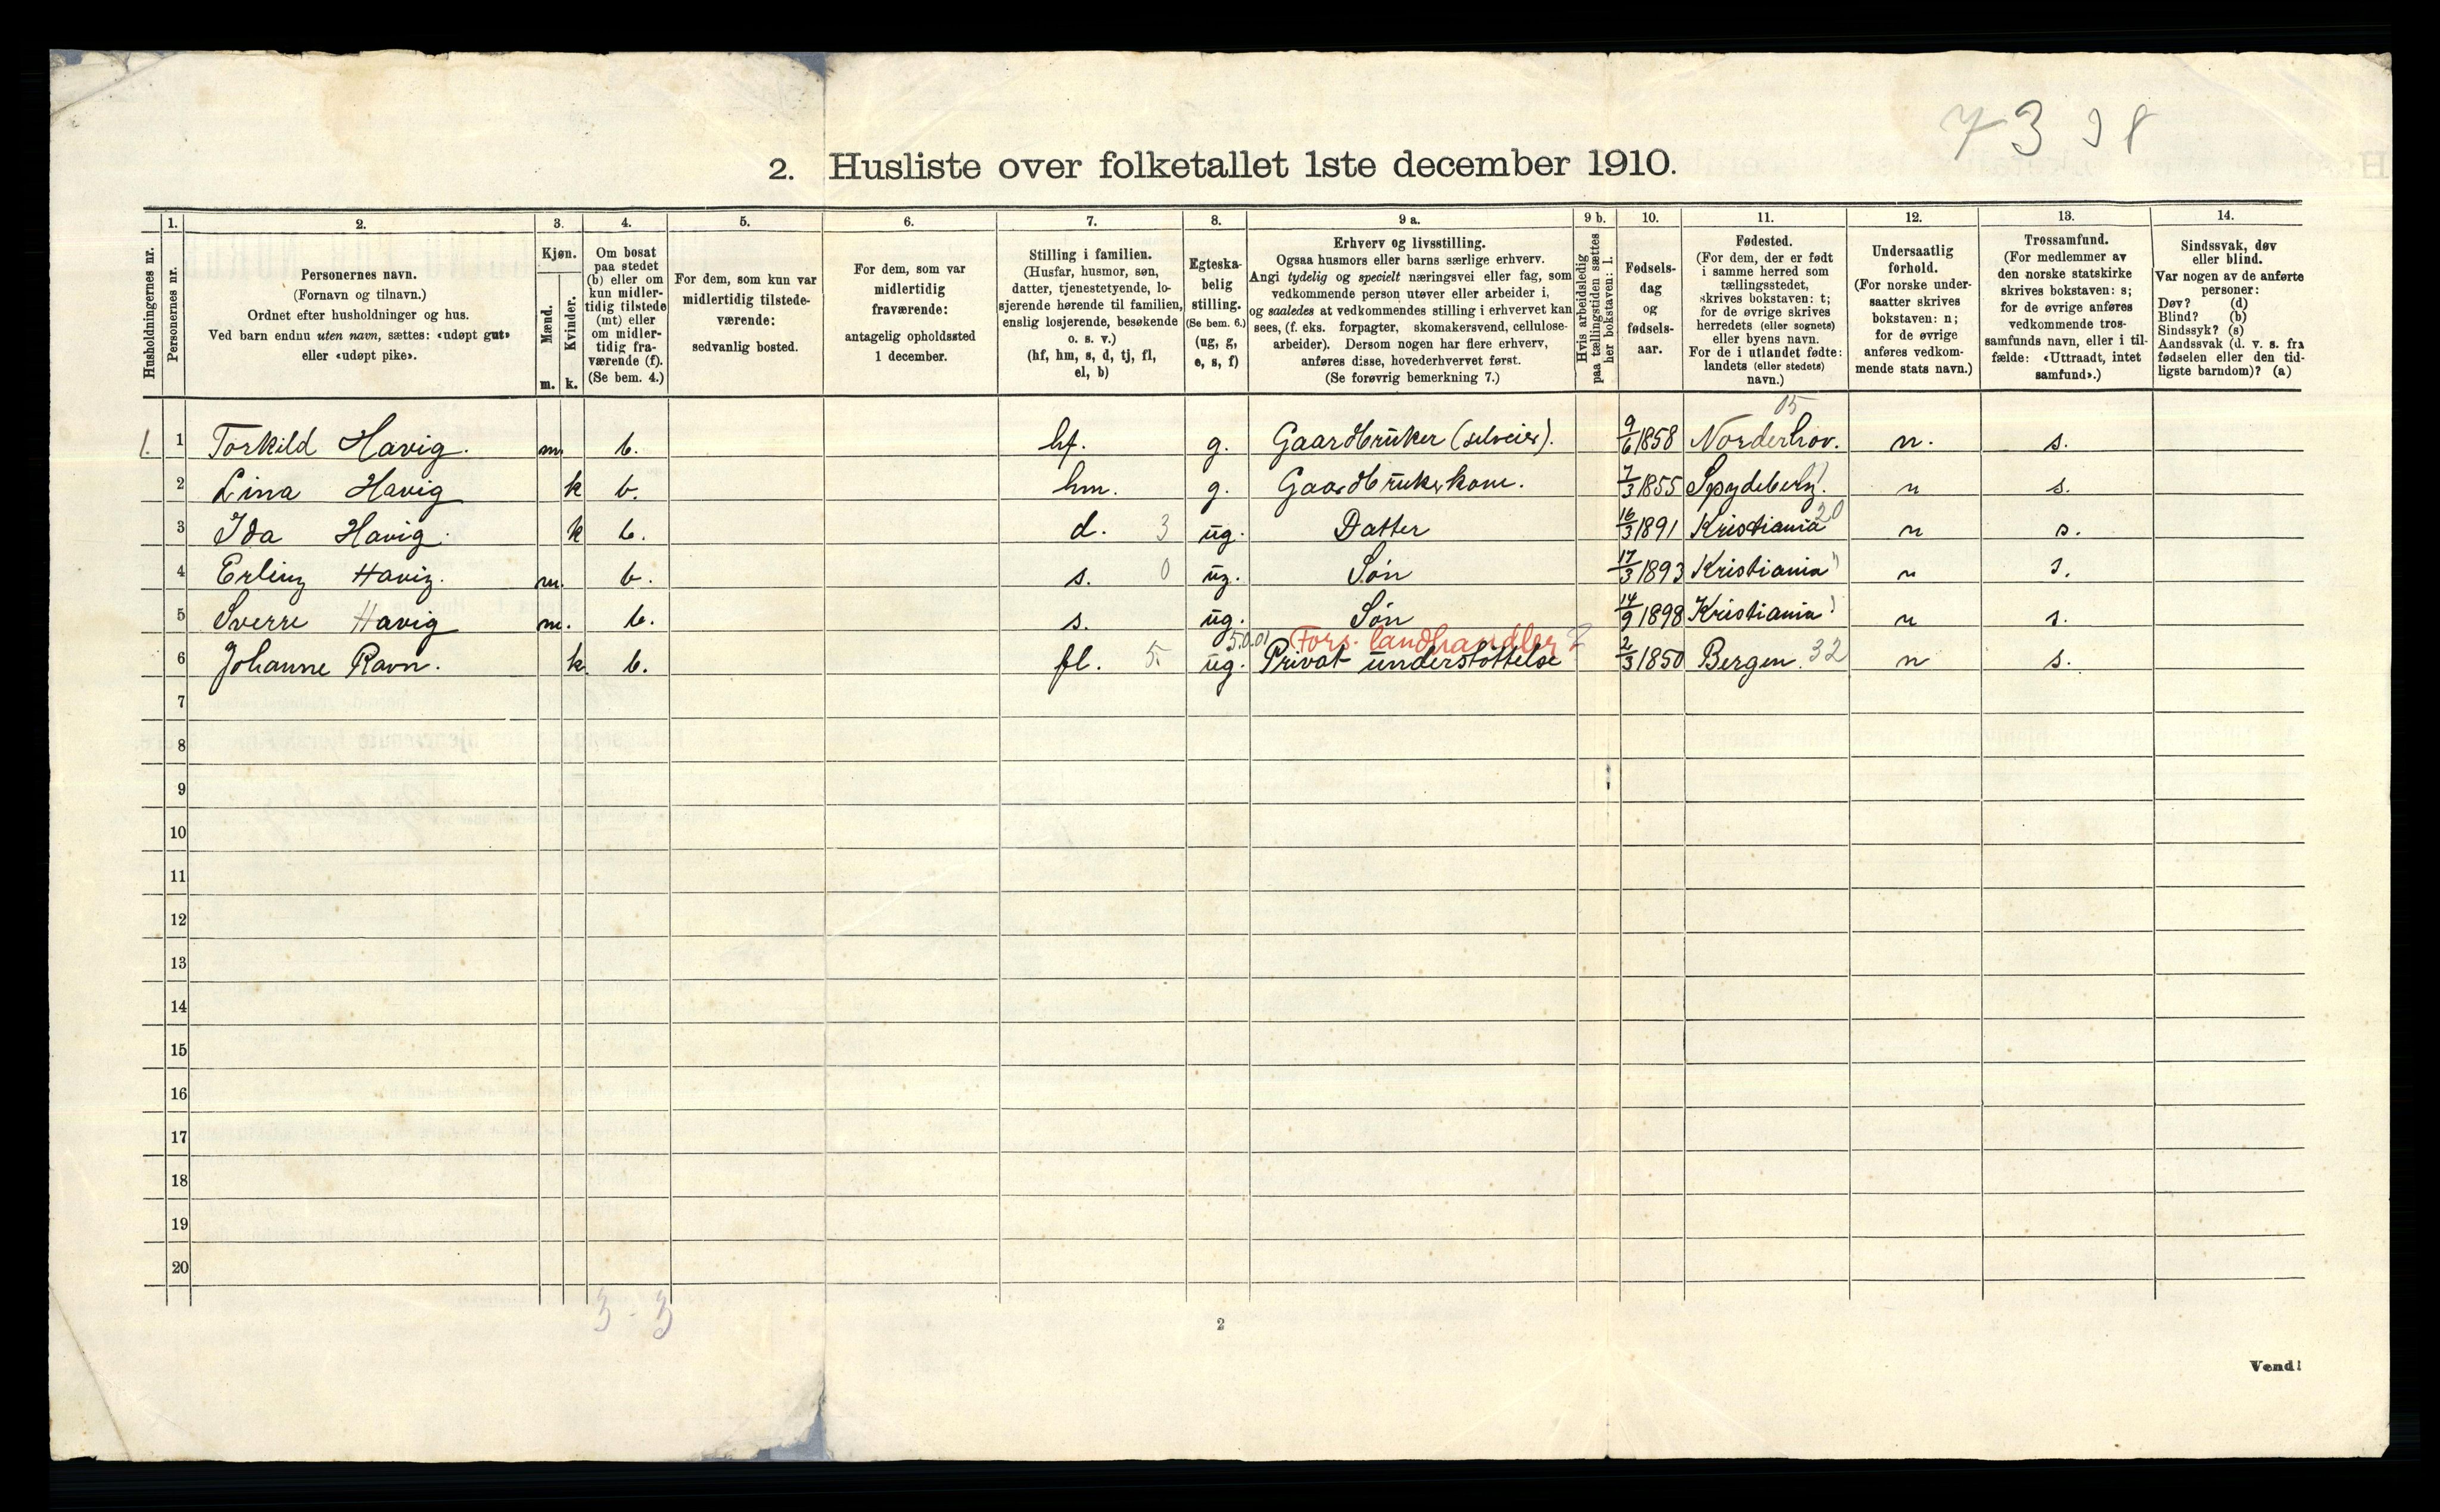 73 38
2. Husliste over folketallet 1ste december 1910.
Husholdningernes nr.
1.
Personernes nr.
2.
Personernes navn.
(Fornavn og tilnavn.)
Ordnet efter husholdninger og hus.
Ved barn endnu uten navn, sættes: «udøpt gut»
eller «udøpt pike».
3.
Kjøn.
Mænd.
Kvinder.
m. k.
4.
Om bosat
paa stedet
(b) eller om
kun midler-
tidig tilstede
(mt) eller
om midler-
tidig fra-
værende (f).
(Se bem. 4.)
5.
For dem, som kun var
midlertidig tilstede-
værende:
sedvanlig bosted.
6.
For dem, som var
midlertidig
fraværende:
antagelig opholdssted
1 december.
7.
Stilling i familien.
(Husfar, husmor, søn,
datter, tjenestetyende, lo-
sjerende hørende til familien,
enslig losjerende, besøkende
o. s. v.)
(hf, hm, s, d, tj, fl,
el, b)
8.
Egteska-
belig
stilling.
(Se bem. 6.)
(ug, g,
e, s, f)
9 a.
Erhverv og livsstilling.
Ogsaa husmors eller barns særlige erhverv.
Angi tydelig og specielt næringsvei eller fag, som
vedkommende person utøver eller arbeider i,
og saaledes at vedkommendes stilling i erhvervet kan
sees, (f. eks. forpagter, skomakersvend, cellulose-
arbeider). Dersom nogen har flere erhverv,
anføres disse, hovederhvervet først.
(Se forøvrig bemerkning 7.)
9 b.
Hvis arbeidsledig
paa tællingstiden sættes
her bokstaven: l.
10.
Fødsels-
dag
og
fødsels-
aar.
11.
Fødested.
(For dem, der er født
i samme herred som
tællingsstedet,
skrives bokstaven: t;
for de øvrige skrives
herredets (eller sognets)
eller byens navn.
For de i utlandet fødte:
landets (eller stedets)
navn.)
12.
Undersaatlig
forhold.
(For norske under-
saatter skrives
bokstaven: n;
for de øvrige
anføres vedkom-
mende stats navn.)
13.
Trossamfund.
(For medlemmer av
den norske statskirke
skrives bokstaven: s;
for de øvrige anføres
vedkommende tros-
samfunds navn, eller i til-
fælde: «Uttraadt, intet
samfund».)
14.
Sindssvak, døv
eller blind.
Var nogen av de anførte
personer:
Døv? (d)
Blind? (b)
Sindssyk? (s)
Aandssvak (d. v. s. fra
fødselen eller den tid-
ligste barndom)? (a)
05
1. 1 Torkild Havig. m b. hf. g. Gaardbruker (selveier). 9/6 1858 Norderhov. n. s.
2 Lina Havig k b. hm. g. Gaardbrukerkone. 7/3 1855 Spydeberg. n s.
3 Ida Havig. k b. d. 3 ug. Datter 16/3 1891 Kristiania 20 n s.
4 Erling Havig. m. b. s. 0 ug. Søn 17/3 1893 Kristiania " n s.
5 Sverre Havig m. b. s. ug. Søn 14/9 1898 Kristiania n s.
Fors. landhandler
6 Johanne Ravn. k. b. fl. 5. ug. Privat understøttelse 2/3 1850 Bergen. 32 n s.
7
8
9
10
11
12
13
14
15
16
17
18
19
20
3 - 3
2
Vend!